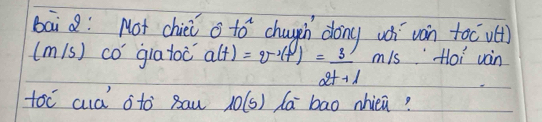 Bài 2: Một chiếc ô tô chuyển động với vận tốc v(t)
(m/s) có gia tốc a(t) = v'(t) = 3/(2t+1) m/s. Hỏi vận
tốc của ô tô sau 10(s) là bao nhiêu?